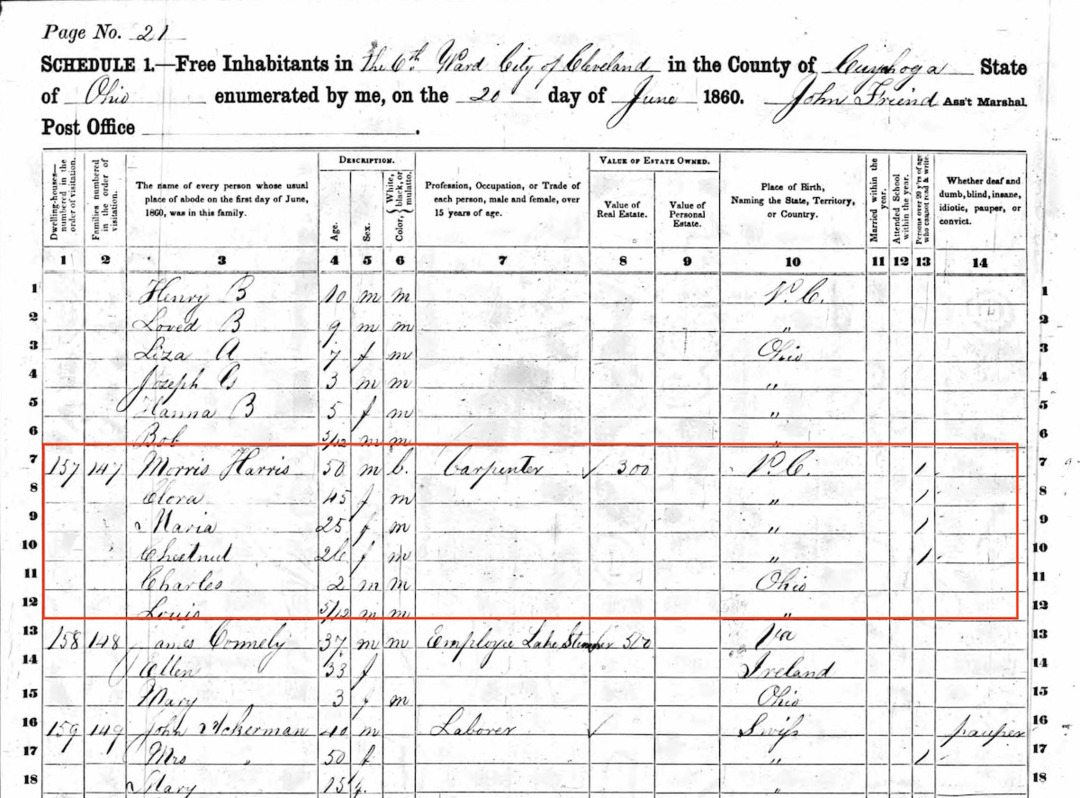 Page No. 21
SCHEDULE 1.—Free Inhabitants in the 6th Ward City of Cleveland in the County of Cuyhoga State
of Ohio enumerated by me, on the 20 day of June 1860. John Friend Ass't Marshal.
Post Office .
Dwelling-houses—numbered in the order of visitation.
Families numbered in the order of visitation.
The name of every person whose usual place of abode on the first day of June, 1860, was in this family.
DESCRIPTION.
Age.
Sex.
Color, { White, black, or mulatto.
Profession, Occupation, or Trade of each person, male and female, over 15 years of age.
VALUE OF ESTATE OWNED.
Value of Real Estate.
Value of Personal Estate.
Place of Birth, Naming the State, Territory, or Country.
Married within the year.
Attended School within the year.
Persons over 20 y'rs of age who cannot read & write.
Whether deaf and dumb, blind, insane, idiotic, pauper, or convict.
1 2 3 4 5 6 7 8 9 10 11 12 13 14
1 Henry B 10 m m N.C. 1
2 Loved B 9 m m " 2
3 Liza A 7 f m Ohio 3
4 Joseph B 3 m m " 4
5 Hanna B 5 f m " 5
6 Bob 3/12 m m " 6
7 157 147 Morris Harris 50 m b. Carpenter / 300 N.C. 1 7
8 Clora 45 f m " 1 8
9 Maria 25 f m " 1 9
10 Chestnut 26 f m " 1 10
11 Charles 2 m m Ohio 11
12 Louis 5/12 m m " 12
13 158 148 James Connely 37 m m Employee Lake Steamer 500 Va 13
14 Ellen 33 f Ireland 14
15 Mary 3 f m Ohio 15
16 159 149 John Ackerman 40 m Laborer / Swiss pauper 16
17 Mrs " 50 f " 1 17
18 Mary 15 f. " 18